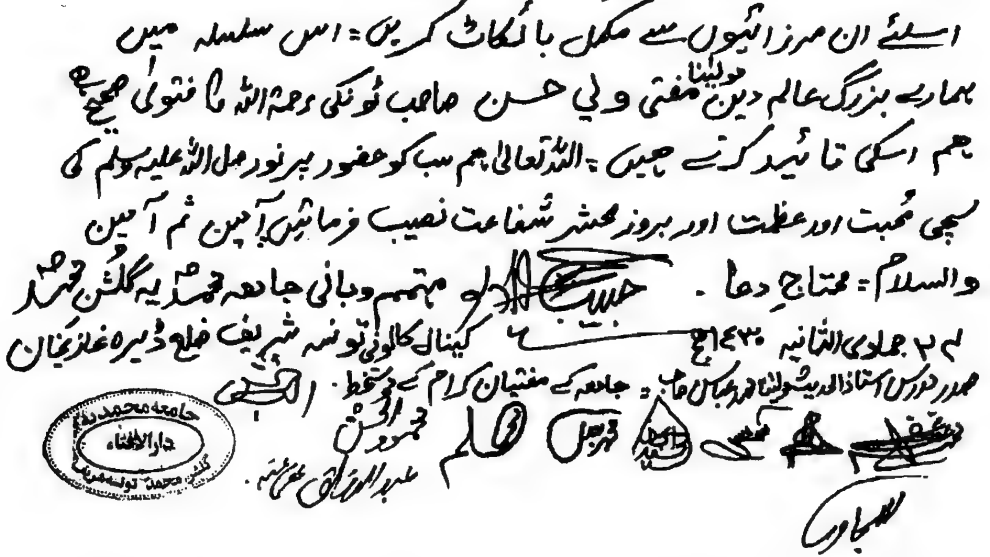 اسلئے ان مرزائیوں سے مکمل بائکاٹ کریں۔ اس سلسلہ میں
ہمارے بزرگ عالم دین مولٰینا مفتی ولی حسن صاحب ٹونکی رحمۃ اللہ کا فتوٰی صحیح ہے
ہم اسکی تائید کرتے ھیں۔ اللہ تعالیٰ ہم سب کو حضور پر نور صل اللہ علیہ وسلم کی
سچی مُحبت اور عظمت اور بروز محشر شفاعت نصیب فرمائیں آمین ثم آمین
والسلام۔ محتاجِ دعا۔ مہتمم وبانی جامعہ محمدیہ گلشن محمد
جمادی الثانیہ ۱۴۳۰ھ کینال کالونی تونسہ شریف ضلع ڈیرہ غازیخان
صدر مدرس استاذ الحدیث مولٰنا محمد عباس صاحب۔ جامعہ کے مفتیان کرام کے دستخط۔
جامعه محمدیہ
دارالافتاء
گلشن محمد تونسہ شریف